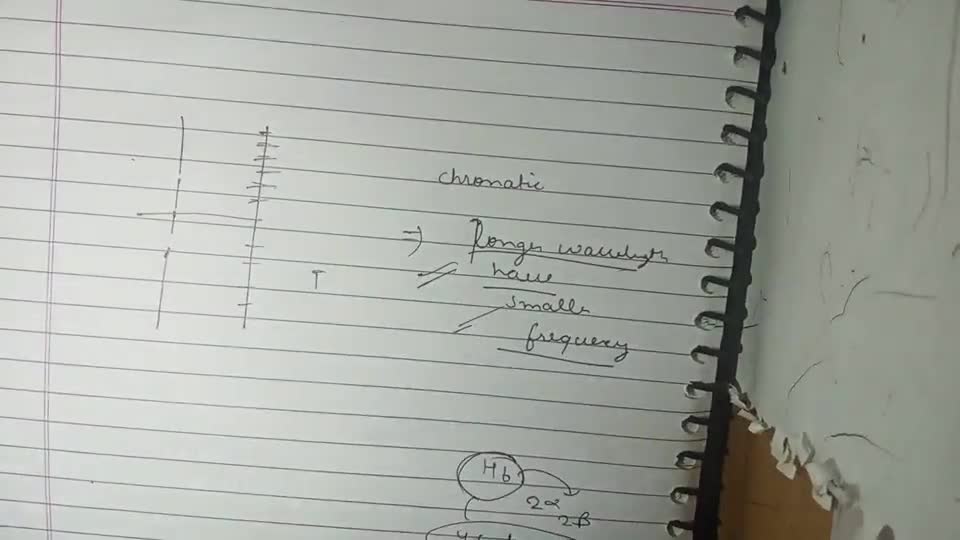 chromatic
⇒ Longer wavelength
have
T
smaller
frequency
Hb
2α
2β